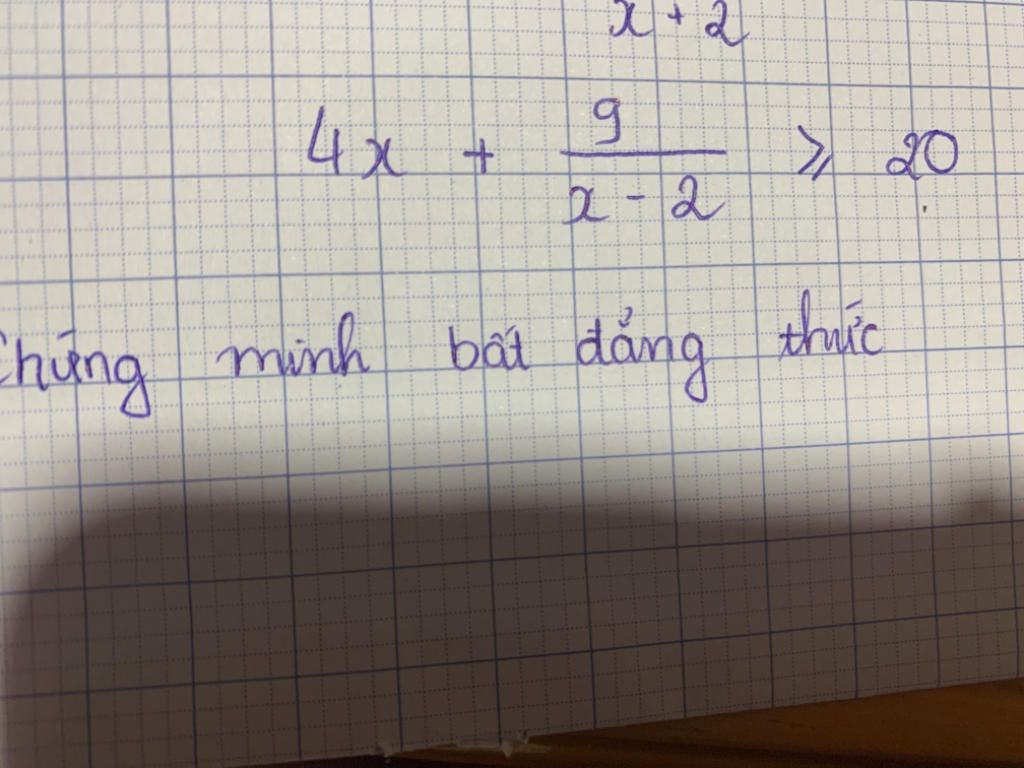 x + 2
4x + 9/(x - 2) ≥ 20
Chứng minh bất đẳng thức